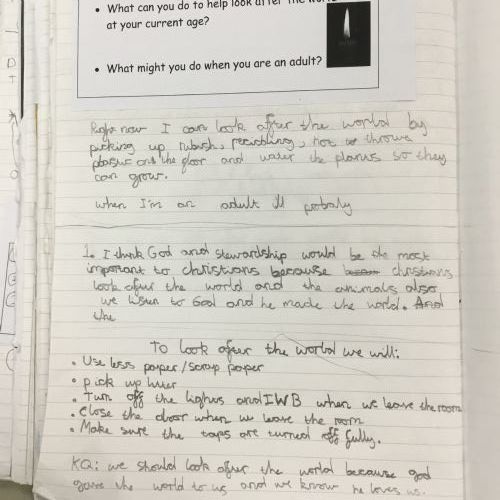 • What can you do to help look after the world
at your current age?
• What might you do when you are an adult?
Right now I can look after the world by
picking up rubish, recicbling, not to throws
plastic ont the floor and water the planus so they
can grow.
when I'm an adult ill probaly
1. I think God and stewardship would be the most
important to christians because christians
look after the world and the animals also
we listen to God and he made the world. And
the
To look after the world we will:
• Use less paper/scrap paper
• pick up litter
• Turn off the lights and IWB when we leave the room
• Close the door when we leave the room
• Make sure the taps are turned off fully.
KQ: we should look after the world because god
gave the world to us and we know he loves us.